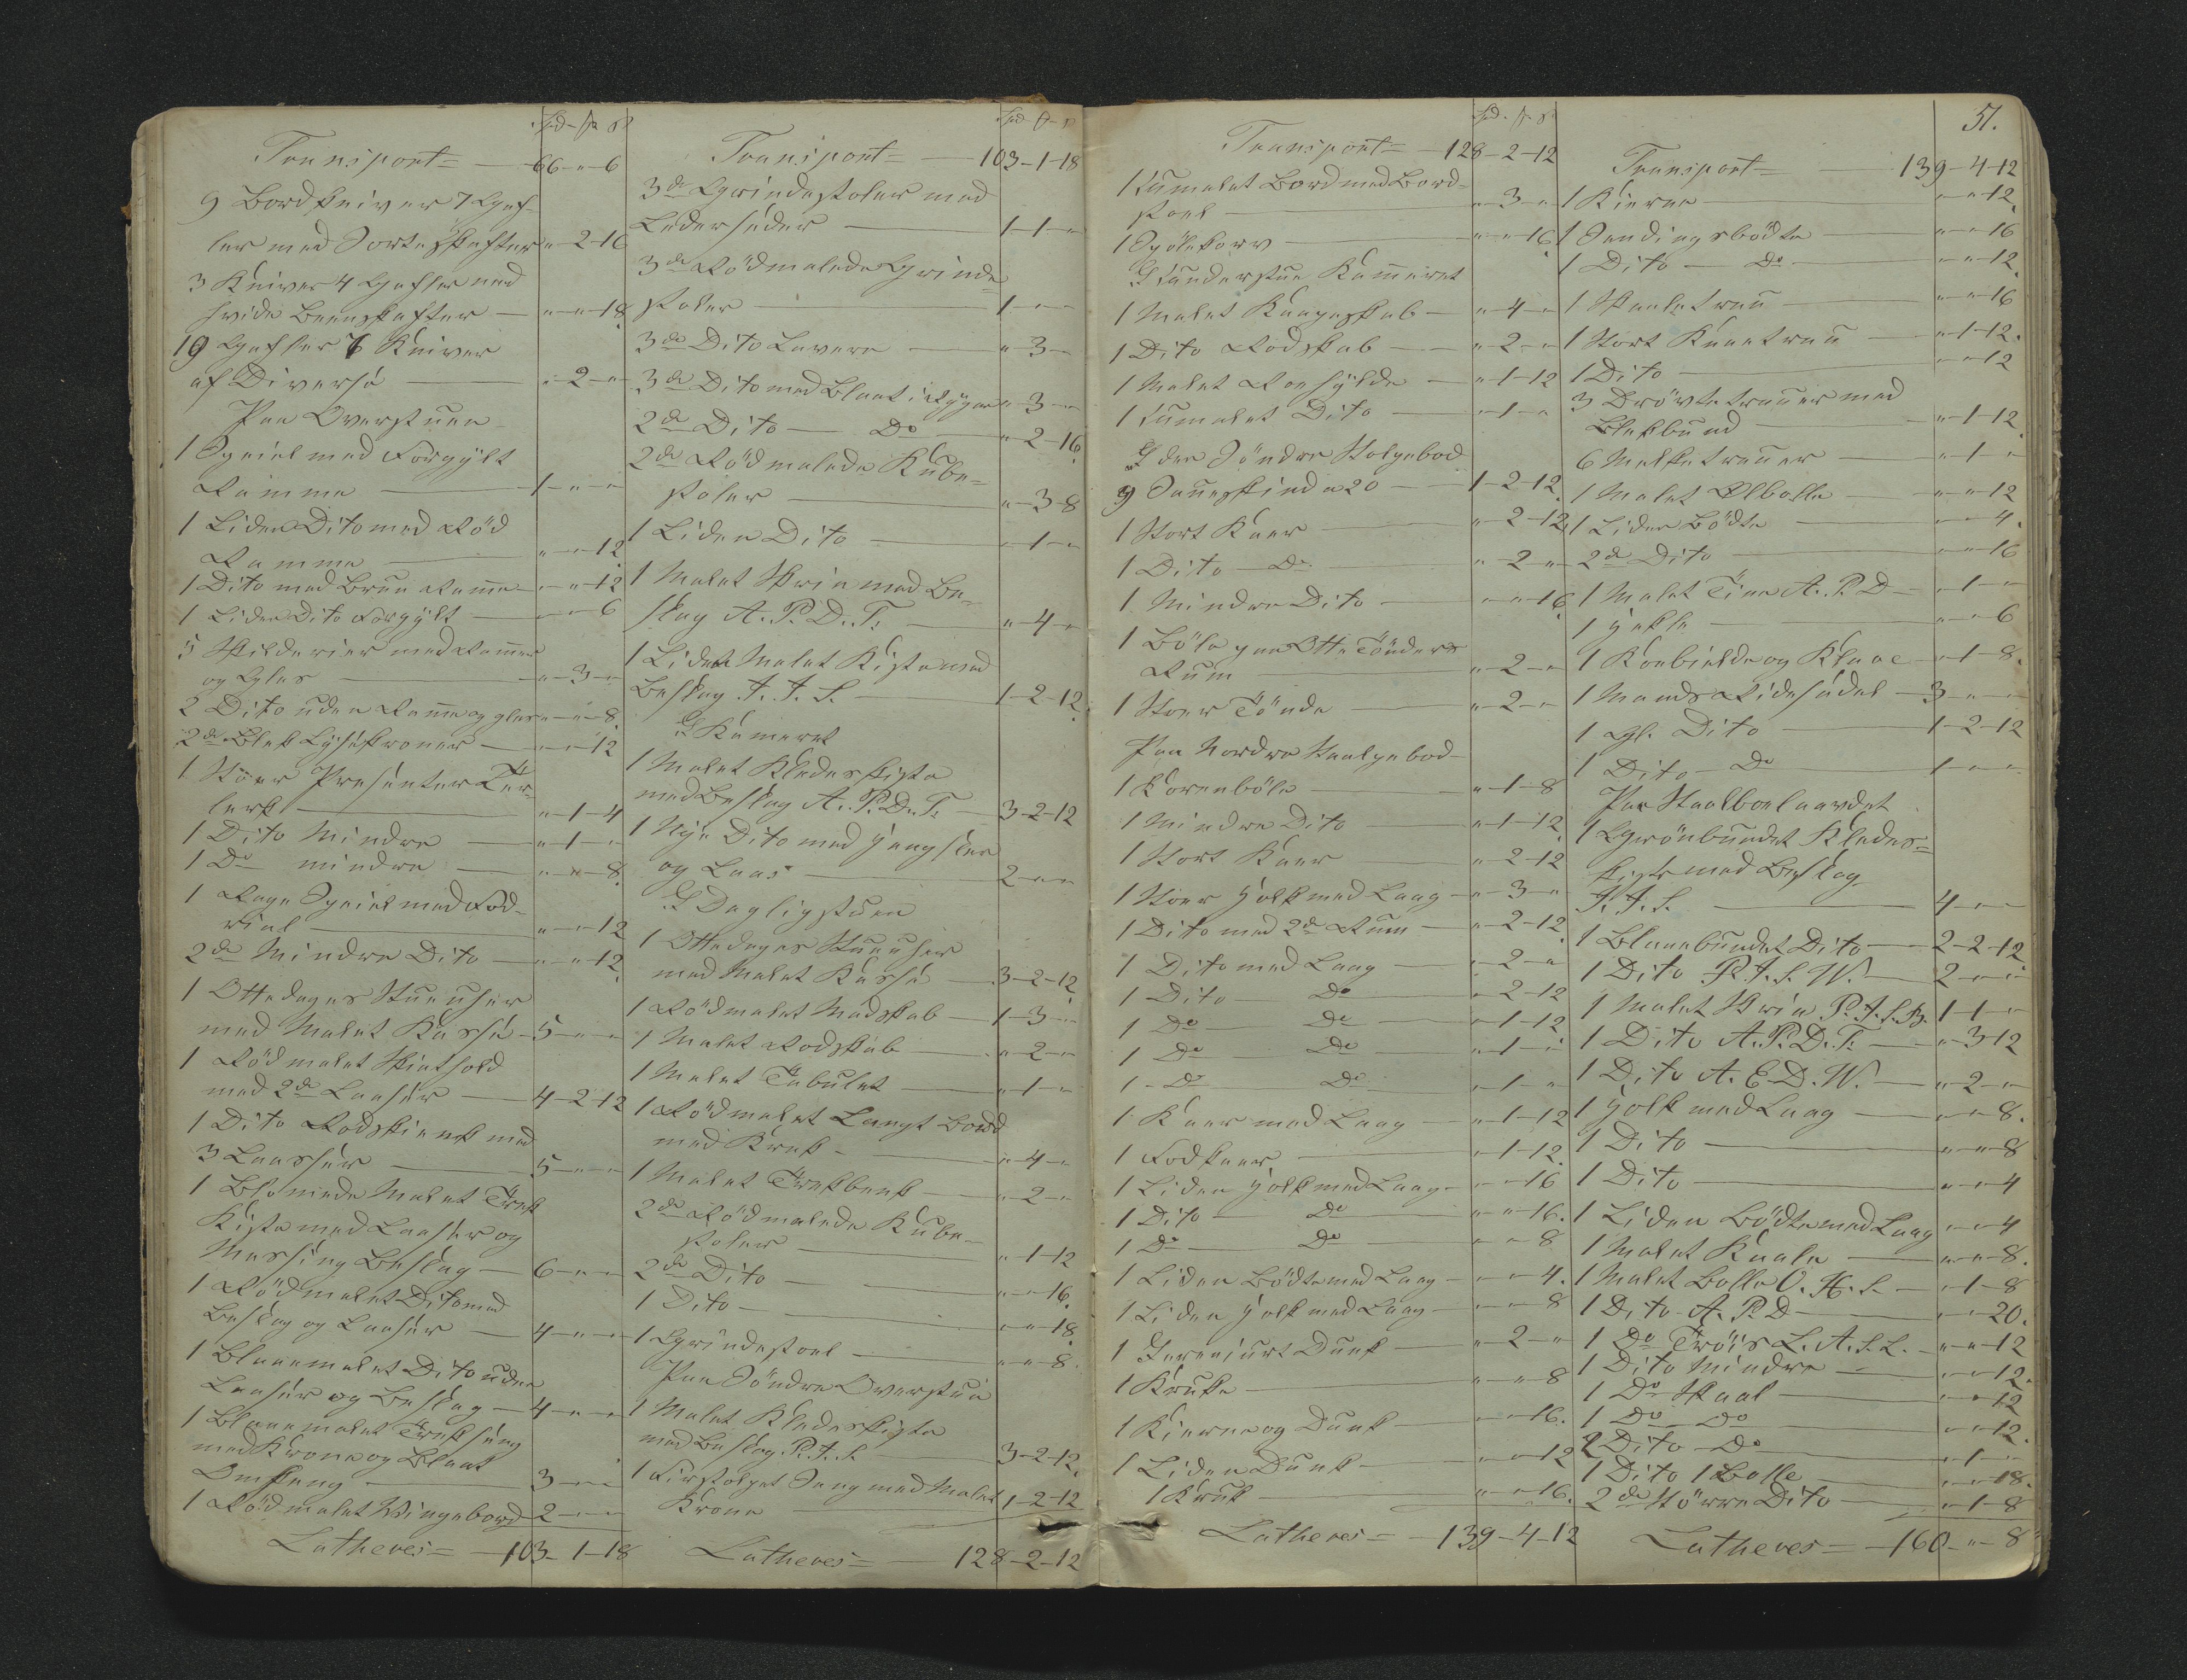 Spd - ß
Transport = 66 - " - 6
9 Bordkniver 7 Gaf-
ler med Sorte Skafter " - 2 - 16
3 Kniver 4 Gafler med
hvide Beenskafter " - " - 18.
19 Gafler 6 Kniver
af Diversé " - 2 - "
Paa Overstuen
1 Speiel med Forgÿlt
Ramme 1 - " - "
1 Liden Dito med Rød
Ramme " - " - 12.
1 Dito med Brun Ramme " - " - 12
1 Liden Dito Forgÿlt " - " - 6
5 Skilderier med Rammer
og Glas " - 3 - "
2 Dito uden Ramme og glas " - " - 8.
2de Blek Lÿsékroner " - " - 12
1 Stöer Presénter Tær-
lerk " - 1 - 4
1 Dito Mindre " - 1 - "
1 Do mindre " - " - 8.
1 Rage Speiel med Fod-
rial " - " - 12
2de Mindre Dito " - " - 12.
1 Ottedages Stueuhr
med Malet Kassé 5 - " - "
1 Rödmalet Skiathold
med 2de Laasér 4 - 2 - 12
1 Dito Rodskienk med
3 Laassér 5 - " - "
1 Blomede Malet Træk
Kiste med Laasér og
Messing Beslag 6 - " - "
1 Rödmalet Dito med
Beslag og Laasér 4 - " - "
1 Blaaemalet Dito uden
Laasér og Beslag 4 - " - "
1 Blaaemalet Trækséng
med Krone og Blaat
Omhæng 3 - " - "
1 Rödmalet Vingebord 2 - " - "
Latheres = 103 - 1 - 18
Spd - ß
Transport = 103 - 1 - 18
3de Grindestoler med
Lædersæder 1 - 1 - "
3de Rödmalede Grinde
stoler 1 - " - "
3de Dito Lavere " - 3 - "
3de Dito med Blaat i Rÿgen " - 3 - "
2de Dito Do " - 2 - 16.
2de Rödmalede Kube-
stoler " - 3 - 8
1 Liden Dito " - 1 - "
1 Malet Skrin med Be-
slag A. P. D. T. " - 4 - "
1 Liden Malet Kiste med
Beslag J. J. S. 1 - 2 - 12.
I Kameret
1 Malet Klædeskiste
med Beslag A. P. D. T. 3 - 2 - 12
1 Nÿe Dito med Hængsler
og Laas 2 - " - "
I Dagligstuen
1 Ottedages Stueuhr
med Malet Kassé 3 - 2 - 12.
1 Rödmalet Madskab 1 - 3 - "
1 Malet Rodskab " - 2 - "
1 Malet Tabulet " - 1 - "
1 Rödmalet Langt Bord
med Krak " - 4 - "
1 Malet Trækbenk " - 2 - "
2de Rödmalede Kube-
stoler " - 1 - 12
2de Dito " - " - 16.
1 Dito " - " - 18.
1 Grindestoel " - " - 8.
Paa Söndre Overstue
1 Malet Klædeskiste
med Beslag P. J. S. 3 - 2 - 12.
1 Firstolpet Seng med Malet
Krone 1 - 2 - 12
Latheres = 128 - 2 - 12
Spd - ß
Transport = 128 - 2 - 12
1 Umalet Bord med Bord-
stoel " - 3 - "
1 Spölekorv " - " - 16.
I Understue Kammeret
1 Malet Kaageskab " - 4 - "
1 Dito Rodskab " - 2 - "
1 Malet Roehÿlde " - 1 - 12
1 Umalet Dito " - 1 - "
I den Söndre Stolpebod
9 Saueskind a 20 1 - 2 - 12.
1 Stort Kaer " - 2 - 12
1 Dito Do " - 2 - "
1 Mindre Dito " - " - 16.
1 Böle paa Otte Tönders
Rum " - 2 - "
1 Stoer Tönde " - 2 - "
Paa Nordre Staalpebod
1 Korenböle " - 1 - 8
1 Mindre Dito " - 1 - 12.
1 Stort Kaer " - 2 - 12
1 Stoer Holk med Laag " - 3 - "
1 Dito med 2de Rum " - 2 - 12.
1 Dito med Laag " - 2 - "
1 Dito Do " - 2 - 12
1 Do Do " - 1 - 12
1 Do Do " - 1 - "
1 Do Do " - 1 - "
1 Kaer med Laag " - 1 - 12
1 Fodkaer " - 1 - 12.
1 Liden Holk med Laag " - " - 16
1 Dito Do " - " - 16.
1 Do Do " - " - 8
1 Liden Bödte med Laag " - " - 4.
1 Liden Holk med Laag " - " - 8
1 Jerngiurt Dunk " - 2 - "
1 Krukke " - " - 8
1 Kierne og Dunk " - " - 16.
1 Liden Dunk " - " - 12
1 Kruk " - " - 16.
Latheres = 139 - 4 - 12
51.
Transport = 139 - 4 - 12
1 Kierne " - " - 12.
1 Sendingsbödte " - " - 16
1 Dito Do " - " - 12.
1 Skaaltrau " - " - 16
1 Stort Knaetrau " - 1 - 12.
1 Dito " - " - 12
3 Drövtetrauer med
Blekbund " - 1 - 12.
6 Melketrauer " - 1 - "
1 Malet Ølbolle " - " - 12
1 Liden Bödte " - " - 4.
2de Dito " - " - 16
1 Malet Tine A. P. D " - 1 - "
1 Hekle " - " - 6
1 Koebielde og Klave " - 1 - 8.
1 Mands Ridesadel 3 - " - "
1 Gl. Dito 1 - 2 - 12
1 Dito Do 1 - " - "
Paa Staalboelaavdet
1 Grönbundet Klædes=
kiste med Beslag
J. J. S. 4 - " - "
1 Blaaebundet Dito 2 - 2 - 12.
1 Dito P. J. S. W. 2 - " - "
1 Malet Skrin P. J. S. B. 1 - 1 - "
1 Dito A. P. D. T. " - 3 - 12
1 Dito A. E. D. W. " - 2 - "
1 Holk med Laag " - " - 8.
1 Dito " - " - 8
1 Dito " - " - 4
1 Liden Bödte med Laag " - " - 4
1 Malet Kaale " - " - 8.
1 Malet Bolle O. H. S. " - 1 - 8
1 Dito A. P. D " - " - 20.
1 Do Tröis L. A. S. L. " - " - 12
1 Dito Mindre " - " - 12.
1 Do Skaal " - " - 12
1 Do Do " - " - 12.
2 Dito Do " - 1 - "
1 Dito 1 Bolle " - " - 18.
2de Större Dito " - 1 - 8
Latheres = 160 - " - 8